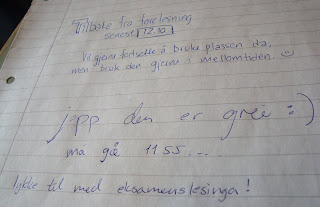 Tilbake fra forelesning
senest 12.10
Vil gjerne fortsette å bruke plassen da,
men bruk den gjerne i mellomtiden. :)
jepp den er grei :)
må gå 11 55 ...
lykke til med eksamenslesinga!